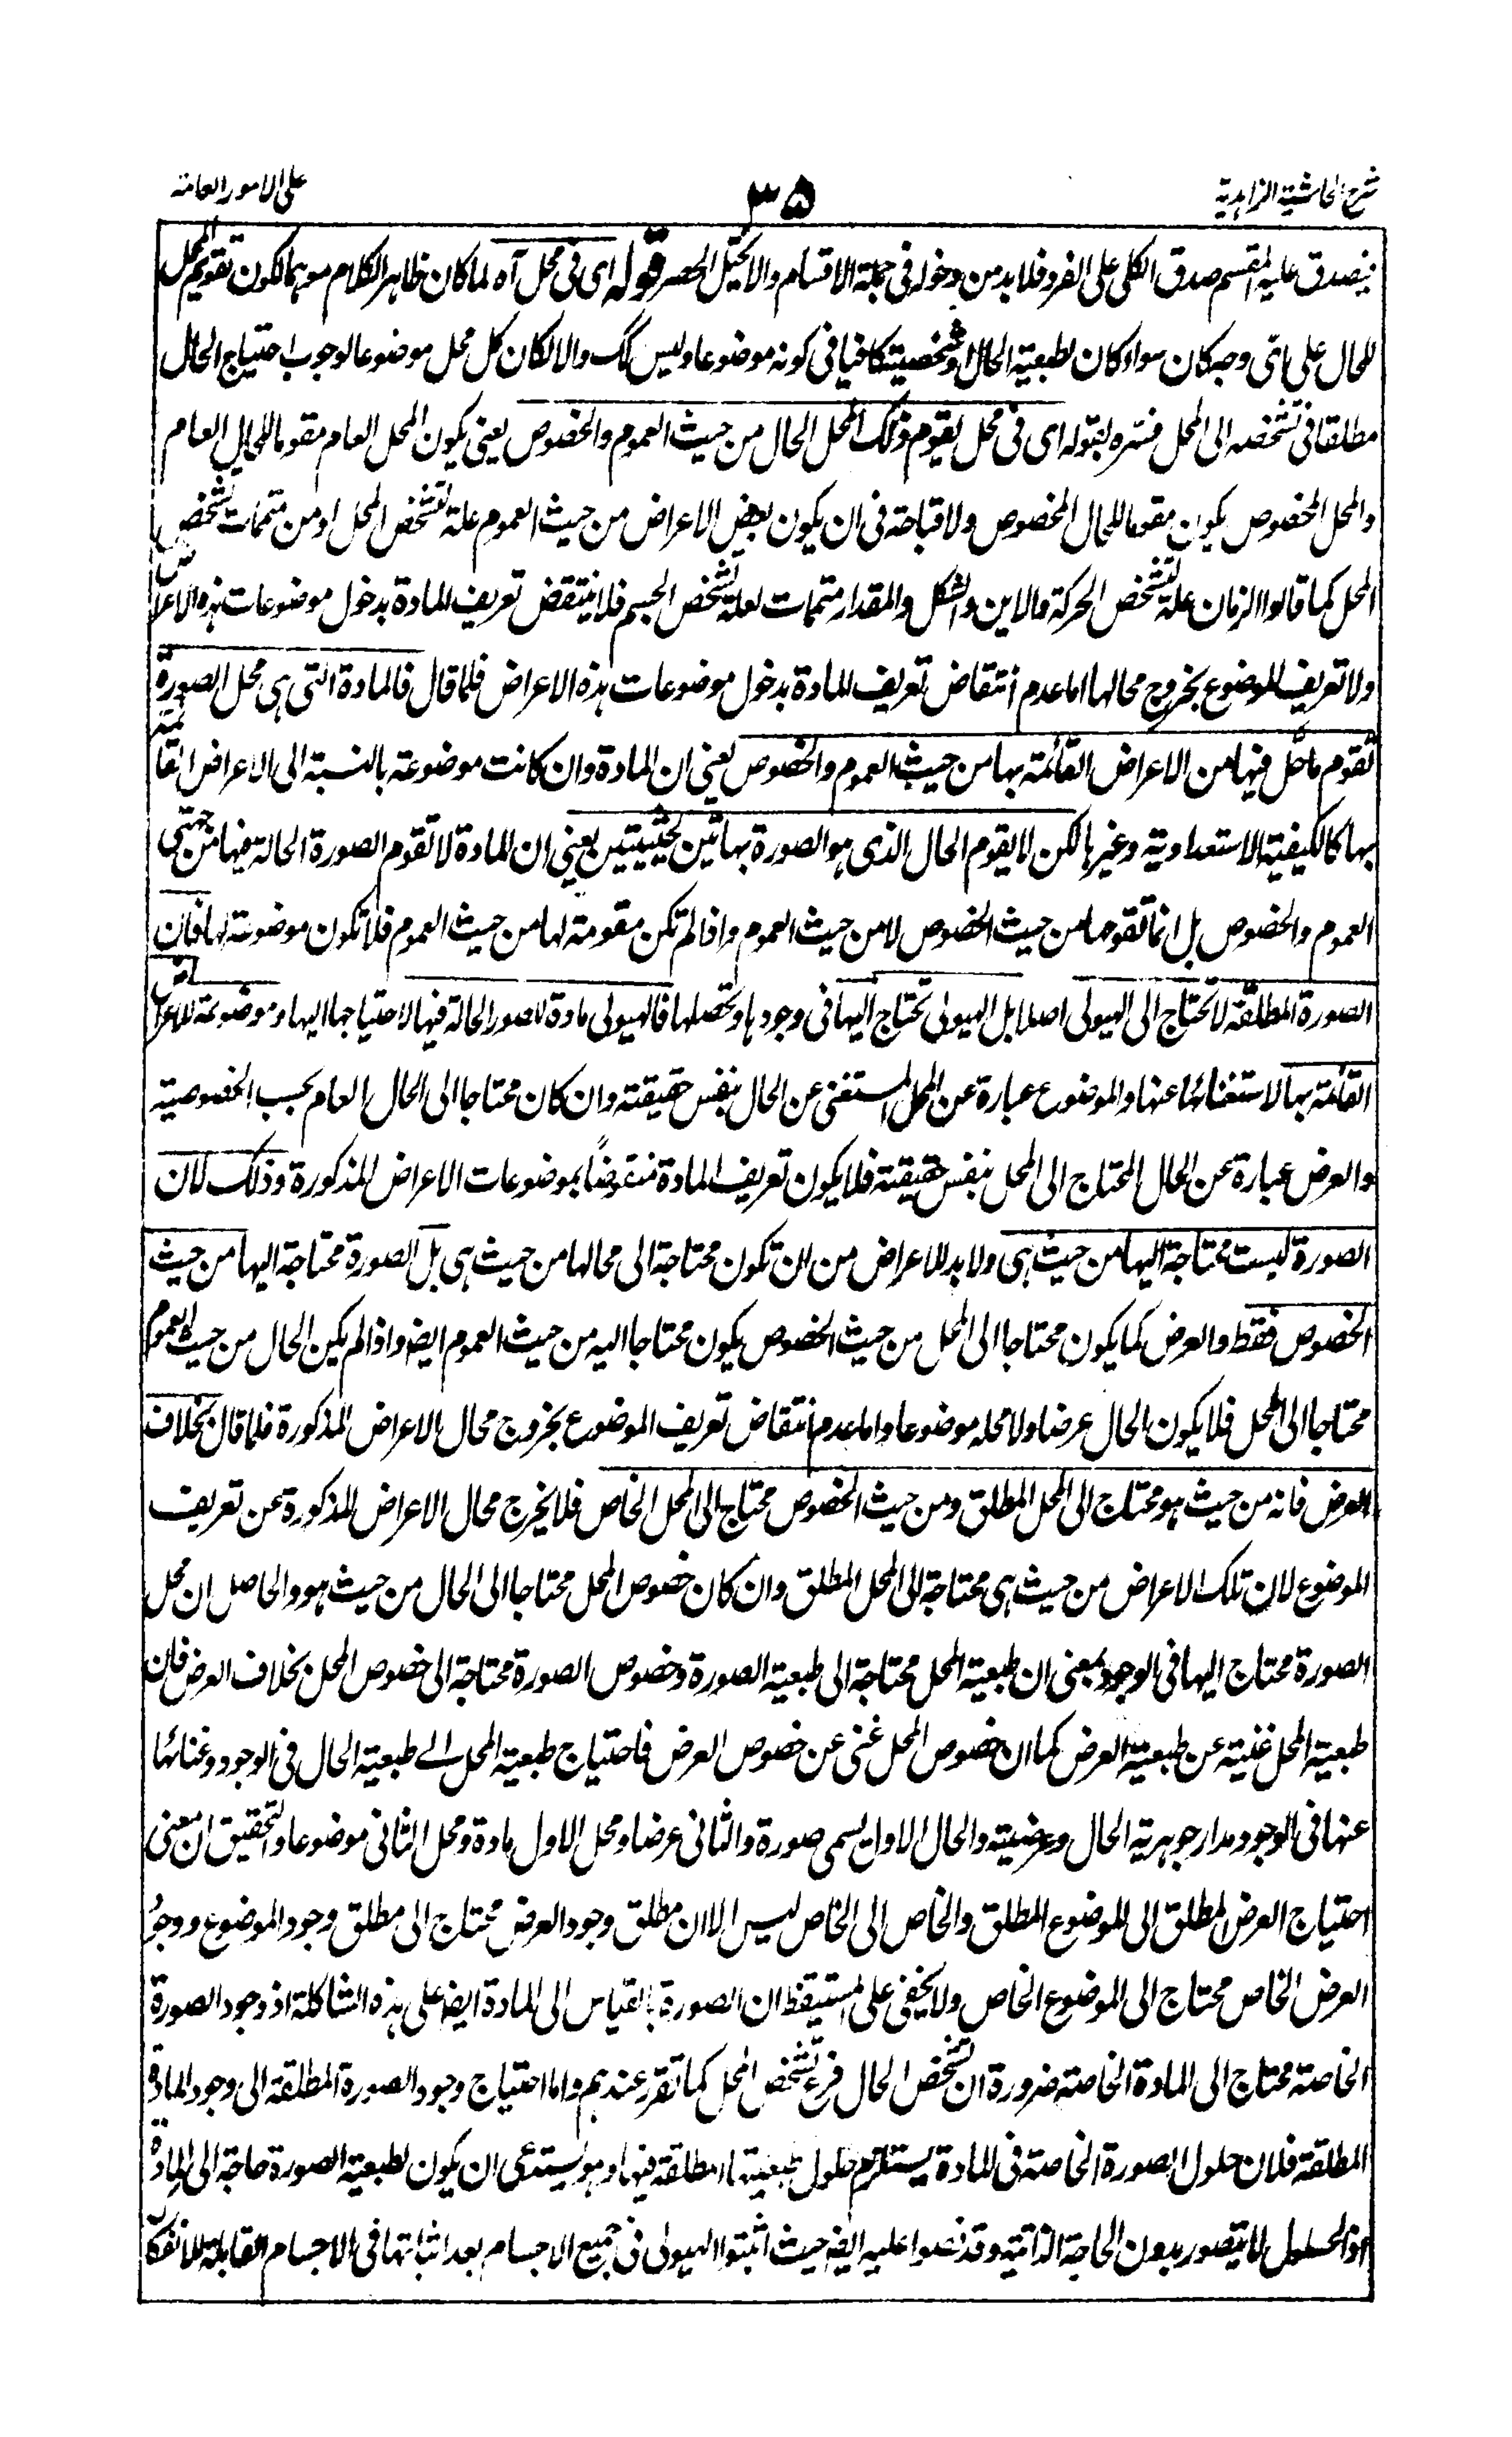 شرح الحاشية الزاهدية
٣٥
على الامور العامة
فيصدق عليه المقسم صدق الكلى على الفرد فلا بد من دخوله فى جملة الاقسام والا لاختل الحصر قوله اى فى محل آه لما كان ظاهر الكلام موهما لكون تقويم المحل
للحال على اى وجه كان سواء كان لطبعية الحال او شخصيته كافيا فى كونه موضوعا وليس كك والا لكان كل محل موضوعا لوجوب احتياج الحال
مطلقا فى تشخصه الى المحل فسره بقوله اى فى محل يقوم ذلك المحل الحال من حيث العموم والخصوص يعنى يكون المحل العام مقوما للحال العام
والمحل المخصوص يكون مقوما للحال المخصوص ولا قباحة فى ان يكون بعض الاعراض من حيث العموم علة لتشخص المحل او من متممات تشخص
المحل كما قالوا الزمان علة لتشخص الحركة والاين والشكل والمقدار متممات لعلة تشخص الجسم فلا ينتقض تعريف المادة بدخول موضوعات هذه الاعراض
ولا تعريف الموضوع بخروج محالها اما عدم انتقاض تعريف المادة بدخول موضوعات هذه الاعراض فلما قال فالمادة التى هى محل الصورة
تقوم ما حل فيها من الاعراض القائمة بها من حيث العموم والخصوص يعنى ان المادة وان كانت موضوعة بالنسبة الى الاعراض القائمة
بها كالكيفية الاستعدادية وغيرها لكن لا يقوم الحال الذى هو الصورة بهاتين الحيثيتين يعنى ان المادة لا تقوم الصورة الحالة فيها من جهتى
العموم والخصوص بل انما تقومها من حيث الخصوص لا من حيث العموم واذا لم تكن مقومة لها من حيث العموم فلا تكون موضوعة لها فان
الصورة المطلقة لا تحتاج الى الهيولى اصلا بل الهيولى تحتاج اليها فى وجودها وتحصلها فالهيولى مادة للصور الحالة فيها لاحتياجها اليها وموضوعة للاعراض
القائمة بها لاستغنائها عنها والموضوع عبارة عن المحل المستغنى عن الحال بنفس حقيقته وان كان محتاجا الى الحال العام بحسب الخصوصية
والعرض عبارة عن الحال المحتاج الى المحل بنفس حقيقته فلا يكون تعريف المادة منقوضًا بموضوعات الاعراض المذكورة وذلك لان
الصورة ليست محتاجة اليها من حيث هى ولا بد للاعراض من ان تكون محتاجة الى محالها من حيث هى بل الصورة محتاجة اليها من حيث
الخصوص فقط والعرض كما يكون محتاجا الى المحل من حيث الخصوص يكون محتاجا اليه من حيث العموم ايضا واذا لم يكن الحال من حيث العموم
محتاجا الى المحل فلا يكون الحال عرضا ولا محله موضوعا واما عدم انتقاض تعريف الموضوع بخروج محال الاعراض المذكورة فلما قال بخلاف
العرض فانه من حيث هو محتاج الى المحل المطلق ومن حيث الخصوص محتاج الى المحل الخاص فلا يخرج محال الاعراض المذكورة عن تعريف
الموضوع لان تلك الاعراض من حيث هى محتاجة الى المحل المطلق وان كان خصوص المحل محتاجا الى الحال من حيث هو والحاصل ان محل
الصورة محتاج اليها فى الوجود بمعنى ان طبعية المحل محتاجة الى طبعية الصورة وخصوص الصورة محتاجة الى خصوص المحل بخلاف العرض فان
طبعية المحل غنية عن طبعية العرض كما ان خصوص المحل غنى عن خصوص العرض فاحتياج طبعية المحل الے طبعية الحال فى الوجود وغنائها
عنها فى الوجود مدار جوهرية الحال وعرضيته والحال الاول يسمى صورة والثانى عرضا ومحل الاول مادة ومحل الثانى موضوعا والتحقيق ان معنى
احتياج العرض المطلق الى الموضوع المطلق والخاص الى الخاص ليس الا ان مطلق وجود العرض محتاج الى مطلق وجود الموضوع ووجود
العرض الخاص محتاج الى الموضوع الخاص ولا يخفى على المستيقظ ان الصورة بالقياس الى المادة ايضا على هذه الشاكلة اذ وجود الصورة
الخاصة محتاج الى المادة الخاصة ضرورة ان تشخص الحال فرع تشخص المحل كما تقرر عندهم واما احتياج وجود الصورة المطلقة الى وجود المادة
المطلقة فلان حلول الصورة الخاصة فى المادة يستلزم حلول طبعيتها المطلقة فيها وهو يستدعى ان يكون لطبعية الصورة حاجة الى المادة
اذ الحلول لا يتصور بدون الحاجة الذاتية وقد نصوا عليه ايضا حيث اثبتوا الهيولى فى جميع الاجسام بعد اثباتها فى الاجسام القابلة للانفكاك